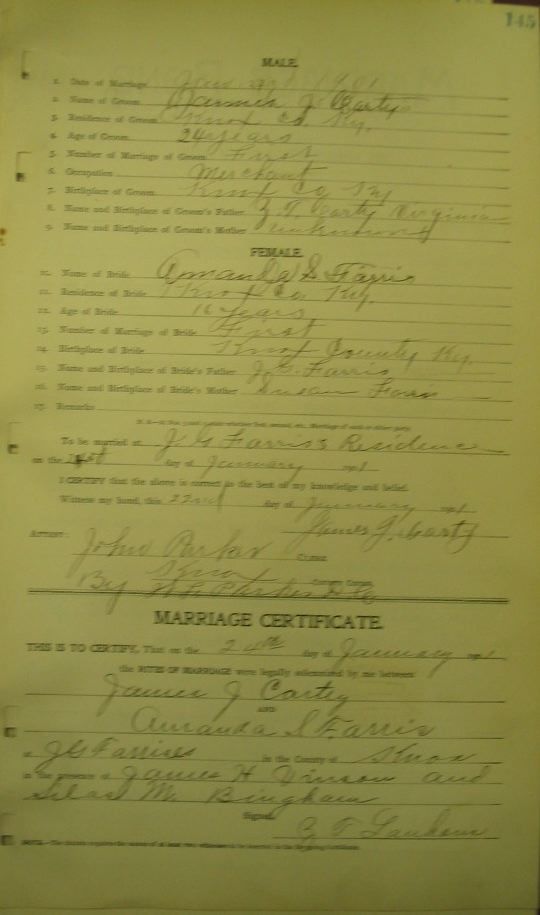 145
MALE.
1. Date of Marriage Jan 1901
2. Name of Groom James J Carty
3. Residence of Groom Knox Co. Ky.
4. Age of Groom 24 years
5. Number of Marriage of Groom First
6. Occupation Merchant
7. Birthplace of Groom Knox Co Ky
8. Name and Birthplace of Groom's Father Carty Virginia
9. Name and Birthplace of Groom's Mother unknown
FEMALE.
10. Name of Bride Amanda S Farris
11. Residence of Bride Knox Co. Ky.
12. Age of Bride 16 years
13. Number of Marriage of Bride First
14. Birthplace of Bride Knox County Ky.
15. Name and Birthplace of Bride's Father J. G. Farris
16. Name and Birthplace of Bride's Mother Susan Faris
17. Remarks
To be married at J G Farris's Residence
on the day of January 1901
I CERTIFY that the above is correct to the best of my knowledge and belief.
Witness my hand, this 22nd day of January 1901
James J. Carty
ATTEST:
John Parker Clerk
Knox County Court
By Parker D C
MARRIAGE CERTIFICATE.
THIS IS TO CERTIFY, That on the 24th day of January 1901
the RITES OF MARRIAGE were legally solemnized by me between
James J Cartey
AND
Amanda S Farris
at J G Farrises in the County of Knox
in the presence of James H Vinson and
Silas M. Bingham
Signed